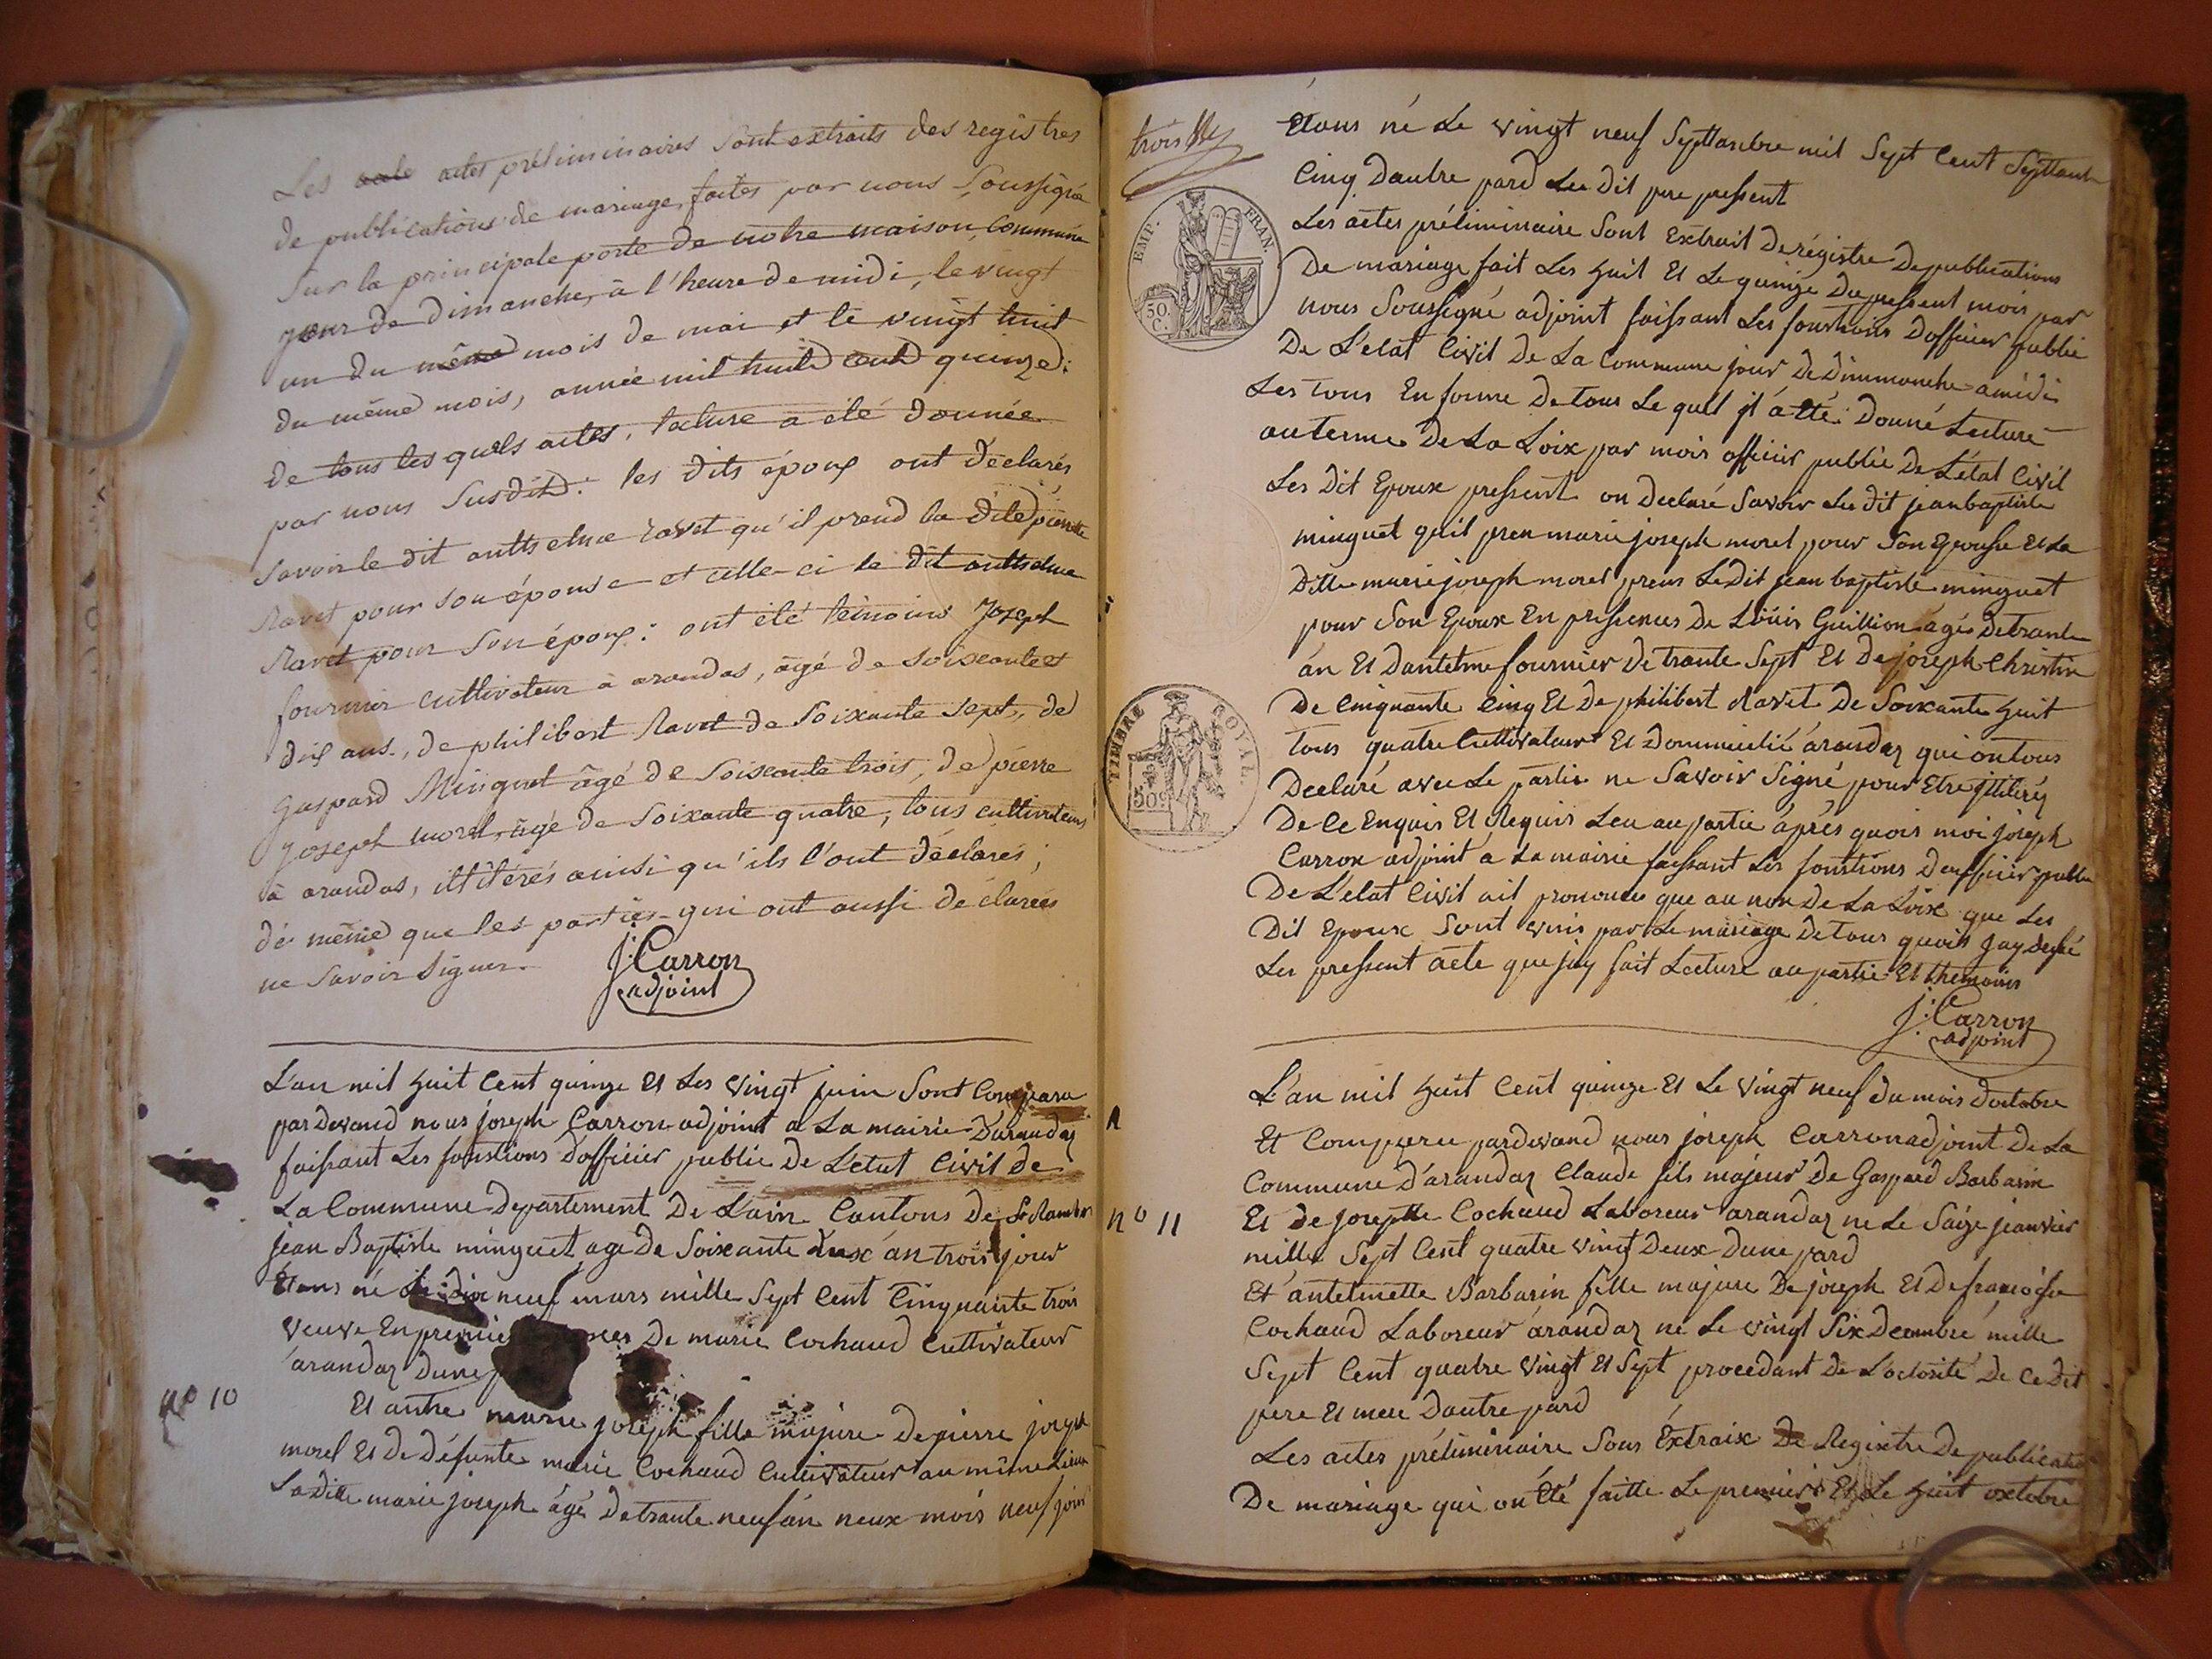 Les acte actes préliminaires sont extraits des registres
de publications de mariage, faites par nous soussigné
sur la principale porte de notre maison commune
jour de dimanche, à l'heure de midi, le vingt
un du même mois de mai et le vingt huit
du même mois, année mil huit cent quinze:
de tous les quels actes, lecture a été donnée
par nous susdit: les dits époux ont déclarés
savoir le dit antthelme ravet qu'il prend la dite pierrette
Ravet pour son épouse et celle-ci le dit antthelme
Ravet pour son époux: ont été témoins Joseph
fournier cultivateur à arandas, âgé de soixante et
dix ans, de philibert Ravet de soixante sept, de
Gaspard Minguet âgé de soixante trois, de pierre
joseph morel, âgé de soixante quatre, tous cultivateurs
à arandas, illitérés ainsi qu'ils l'ont déclarés;
de même que les parties qui ont aussi déclarées
ne savoir signer.
J: Carron
adjoint
L'an mil huit Cent quinze Et Les vingt juin Sont Comparu
pardevand nous joseph Carron adjoint a La mairie D'arandaz
faissant Les fonstions dofficier public De L'etat Civil de
La Commune Departement De L'ain Cantons De St Rambert
jean Baptiste minguet age De Soixante deux an trois jour
Etans né Le dix neuf mars mille Sept Cent Cinquante trois
veuve En premie De marie Cochaud Cultivateur
arandaz Dune
no 10
Et autre marie joseph fille majure De pierre joseph
morel Et De Défunte marie Cochaud Cultivateur au même Lieux
Ladite marie joseph âgé De trante neuf ân neux mois neuf jour
trois
Étans né Le vingt neuf Septtanbre mil Sept Cent Septtante
Cinq Dautre pard Les Dit pere pressent
EMP. FRAN.
50. C.
Les actes préliminaire Sont Extrait De régistre De publications
De mariage fait Les huit Et Le quinze Du pressent mois par
nous Soussigné adjoint faissant Les fonstions Dofficier public
De L'etat Civil De La Commune jour De Dimmanche a midi
Les tous En forme De tous Le quel il á été Donné Lecture
au terme De La Loix par mois officier public De L'état Civil
Les Dit Epoux pressent on Declaré Savoir Les Dit jean baptiste
minguet qu'il pren marie joseph morel pour Son Epousse Et La
Ditte marie joseph morel prens Le Dit jean baptiste minguet
pour Son Epoux En pressences De Loüis Guillion âgés De trante
án Et Dantelme fournier De trante Sept Et De joseph Christin
De Cinquante Cinq Et De philibert Ravet De Soixante huit
TIMBRE ROYAL
50c
tous quatre Cultivateur Et Dommicilié árandaz qui on tous
Declaré avec Le partie ne Savoir Signé pour Etre jllitéré
De Ce Enquis Et Requis Leu au partie áprés quois moi joseph
Carron adjoint á La mairie faissant Les fonstions Dofficier public
De L'etat Civil ait prononcé que au non De La Loix que Les
Dit Epoux Sont unis par Le mariage De tous quois Jay Dressé
Les pressent acte que jay fait Lecture au partie Et themoins
J: Carron
adjoint
L'an mil huit Cent quinze Et Le vingt neuf du mois doctobre
Et Comparu pardevand nous joseph Carron adjoint De La
Commune D'arandaz Claude fils majeur De Gaspard Barbarin
no 11
Et De josephtte Cochaud Laboreur arandaz ne Le Saize jeanvier
mille Sept Cent quatre vingt Deux Dune pard
Et antelmette Barbarin fille majure De joseph Et De francoise
Cochaud Laboreur arandaz ne Le vingt Six Decembre mille
Sept Cent quatre vingt Et Sept procedant De L'octorité De Ce Dit
pere Et mere Dautre pard
Les actes préliminaire Sons Extraix De Registre De publication
De mariage qui on été faitte Le premier Et Le huit octobre